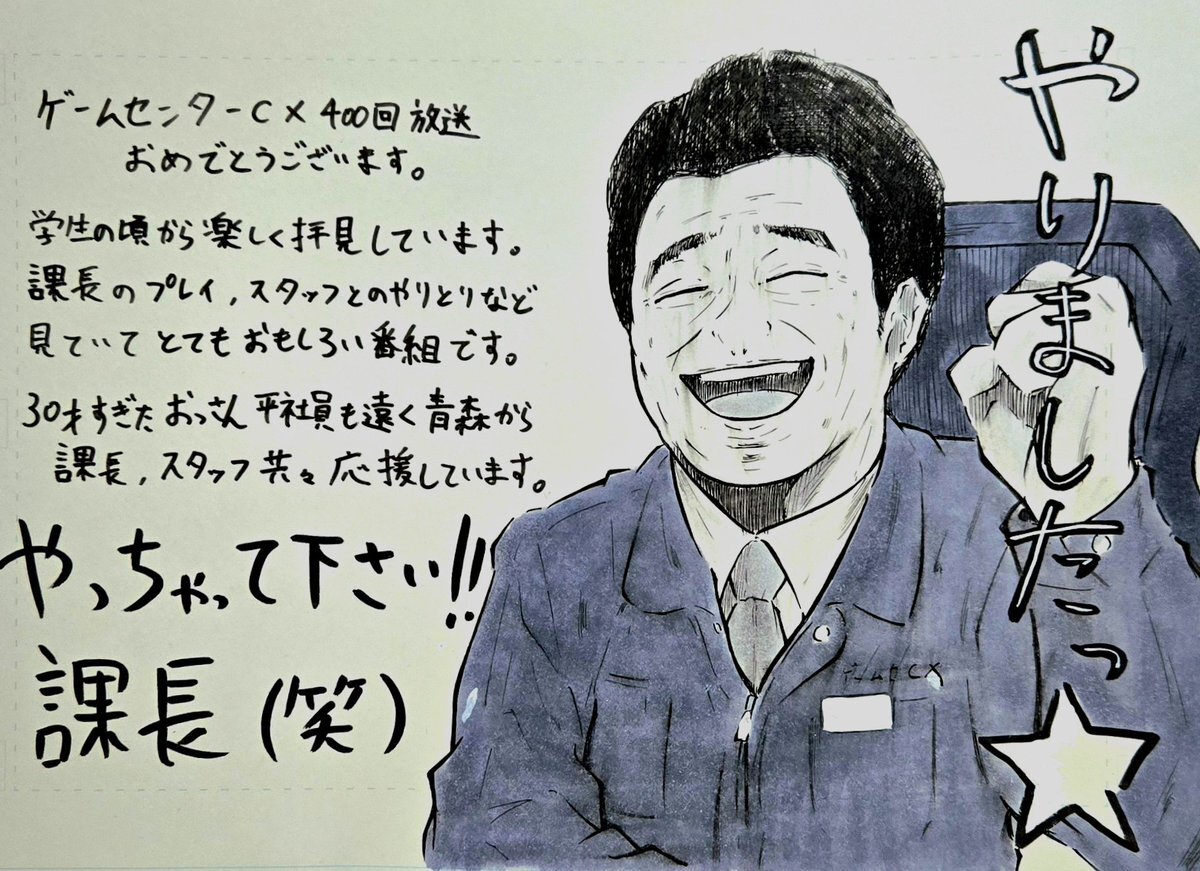 ゲームセンターCX 400回放送
おめでとうございます。
学生の頃から楽しく拝見しています。
課長のプレイ,スタッフとのやりとりなど
見ていてとてもおもしろい番組です。
30才すぎたおっさん平社員も遠く青森から
課長,スタッフ共々応援しています。
やっちゃって下さい!!
課長(笑)
やりましたっ☆
CX